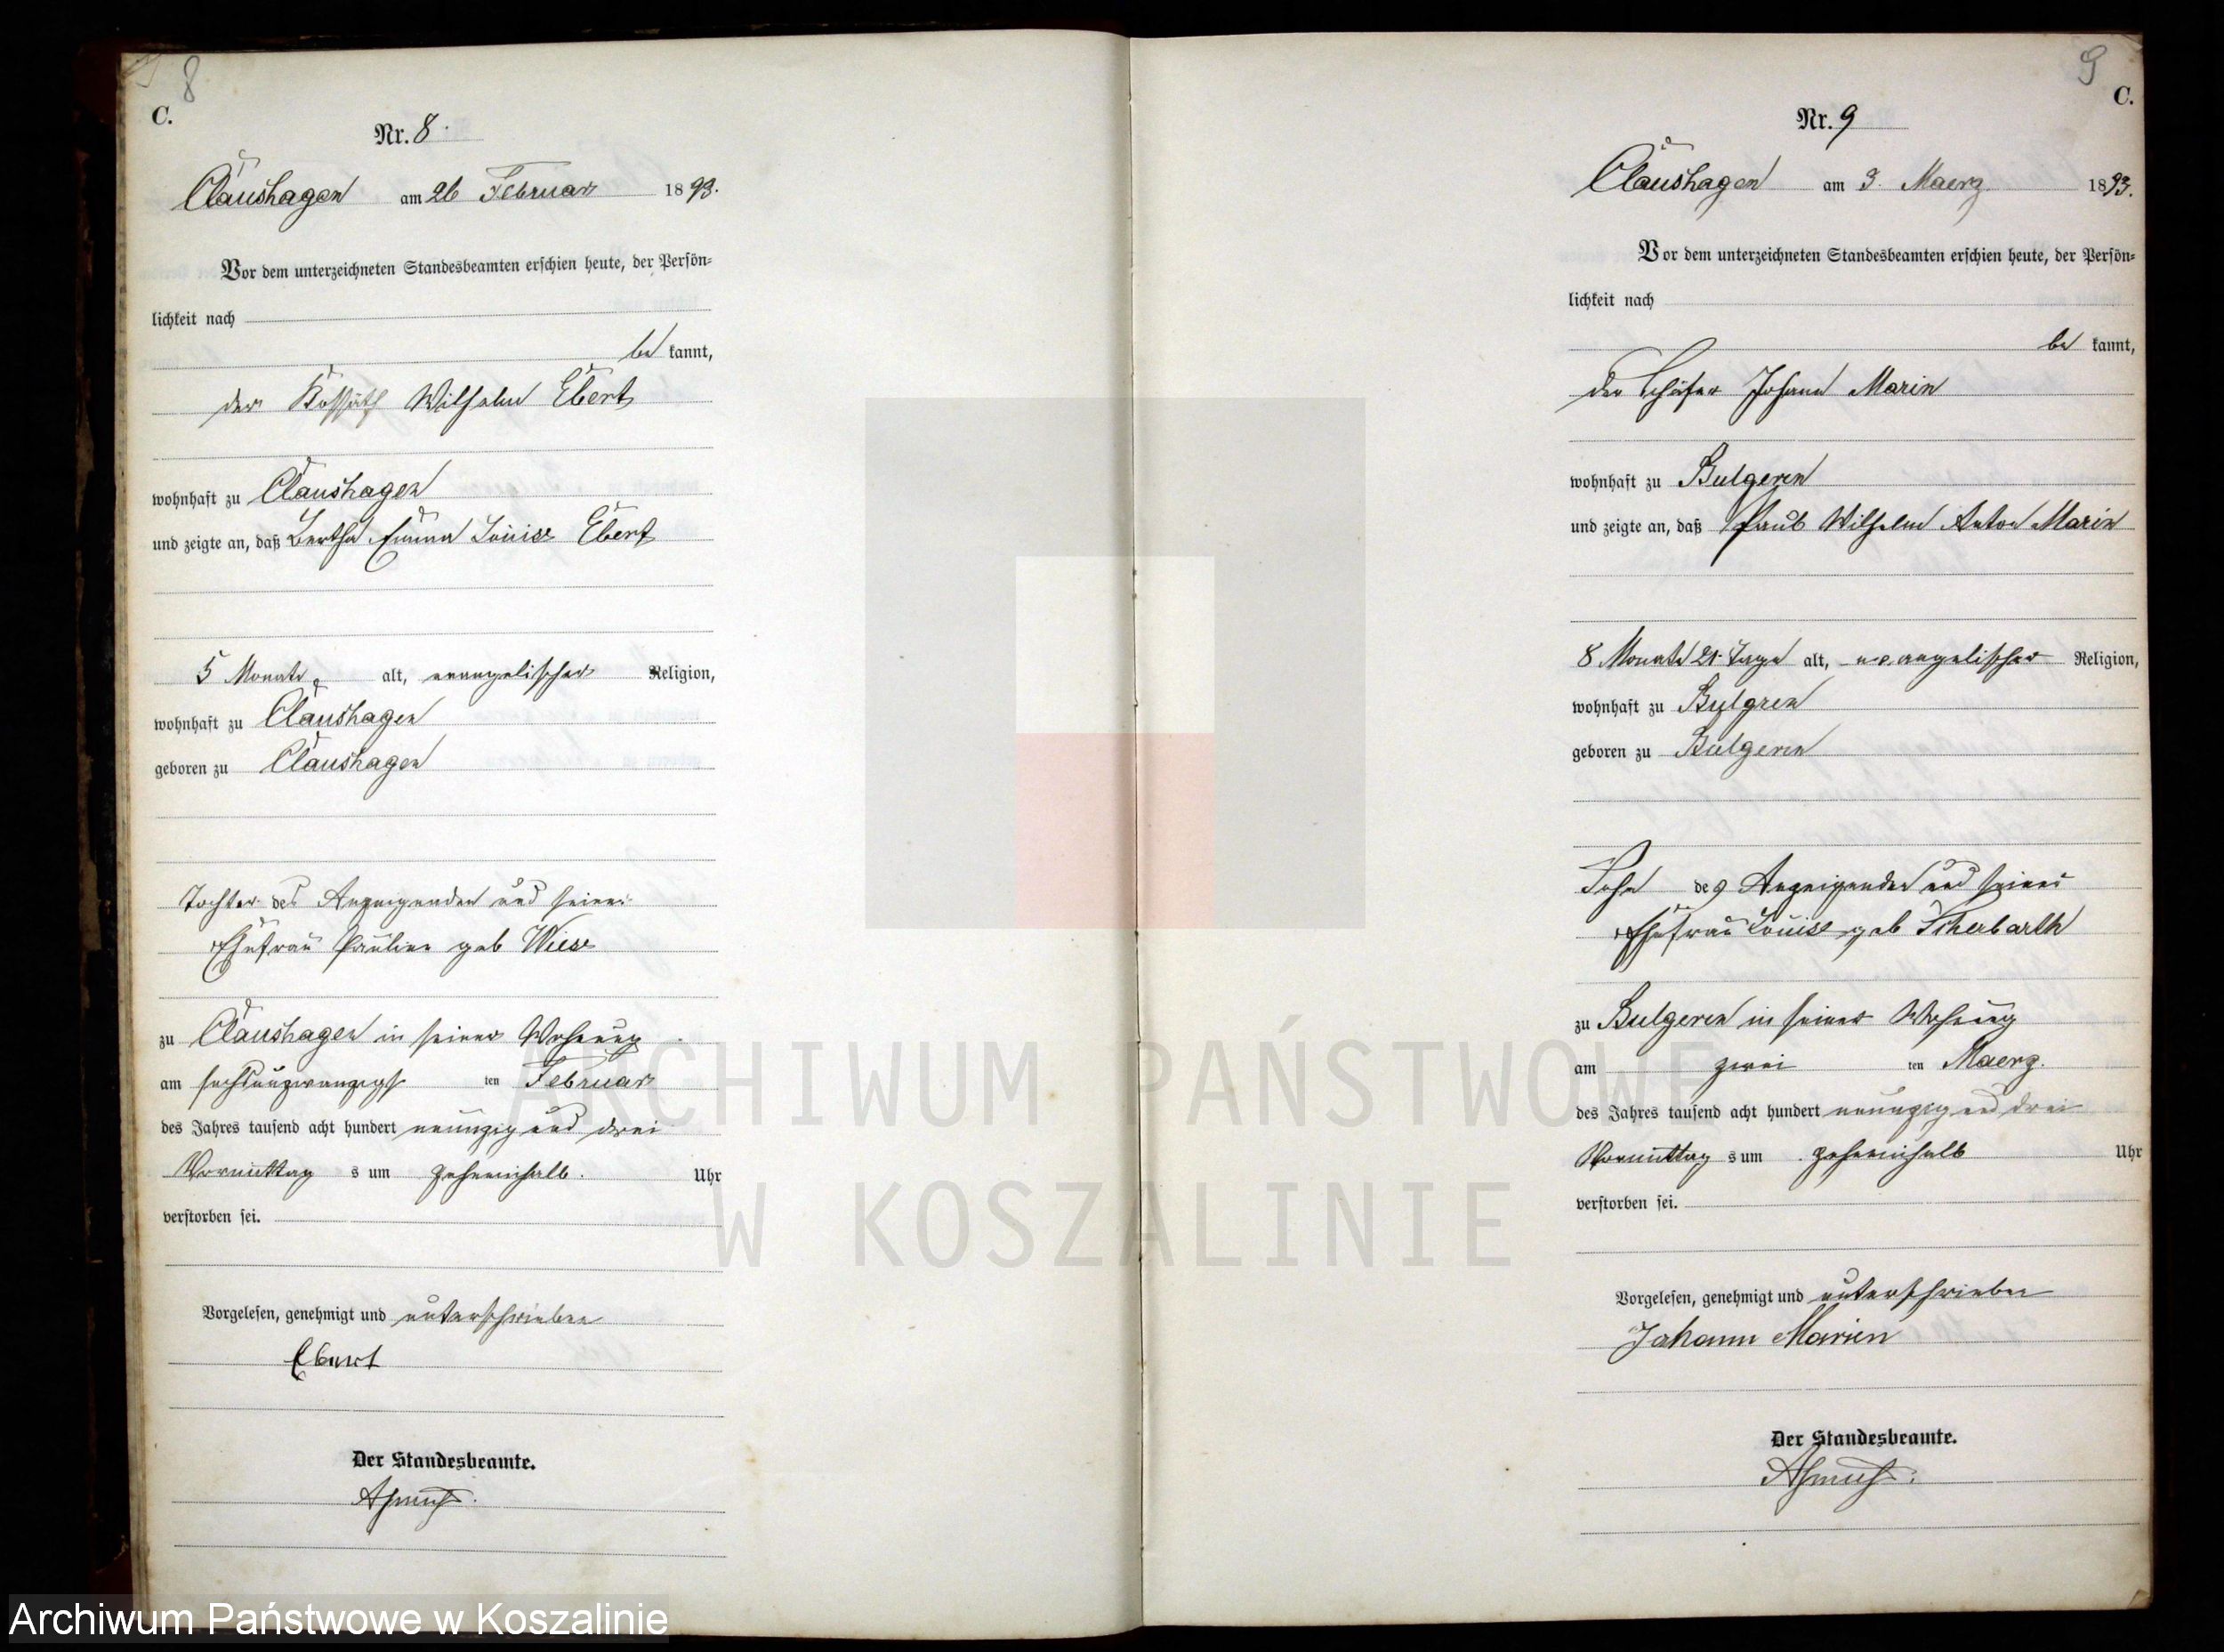 8
C.
Nr. 8.
Claushagen am 26 Februar 1893.
Vor dem unterzeichneten Standesbeamten erschien heute, der Persön=
lichkeit nach
be kannt,
der Kossäth Wilhelm Ebert
wohnhaft zu Claushagen
und zeigte an, daß Bertha Emma Louise Ebert
5 Monate alt, evangelischer Religion,
wohnhaft zu Claushagen
geboren zu Claushagen
Tochter des Anzeigenden und seiner
Ehefrau Pauline geb Wiese
zu Claushagen in seiner Wohnung
am sechsundzwanzigst ten Februar
des Jahres tausend acht hundert neunzig und drei
Vormittag s um zehneinhalb. Uhr
verstorben sei.
Vorgelesen, genehmigt und unterschrieben
Ebert
Der Standesbeamte.
9
C.
Nr. 9
Claushagen am 3. Maerz 1893.
Vor dem unterzeichneten Standesbeamten erschien heute, der Persön=
lichkeit nach
be kannt,
der Schäfer Johann Marin
wohnhaft zu Bulgerin
und zeigte an, daß Paul Wilhelm Anton Marin
8 Monate 21 Tage alt, evangelischer Religion,
wohnhaft zu Bulgrin
geboren zu Bulgerin
Sohn des Anzeigenden und seiner
Ehefrau Louise geb Scherbarth
zu Bulgerin in seiner Wohnung
am zwei ten Maerz.
des Jahres tausend acht hundert neunzig und drei
Vormittag s um zehneinhalb Uhr
verstorben sei.
Vorgelesen, genehmigt und unterschrieben
Johann Marien
Der Standesbeamte.
ARCHIWUM PAŃSTWOWE
W KOSZALINIE
Archiwum Państwowe w Koszalinie